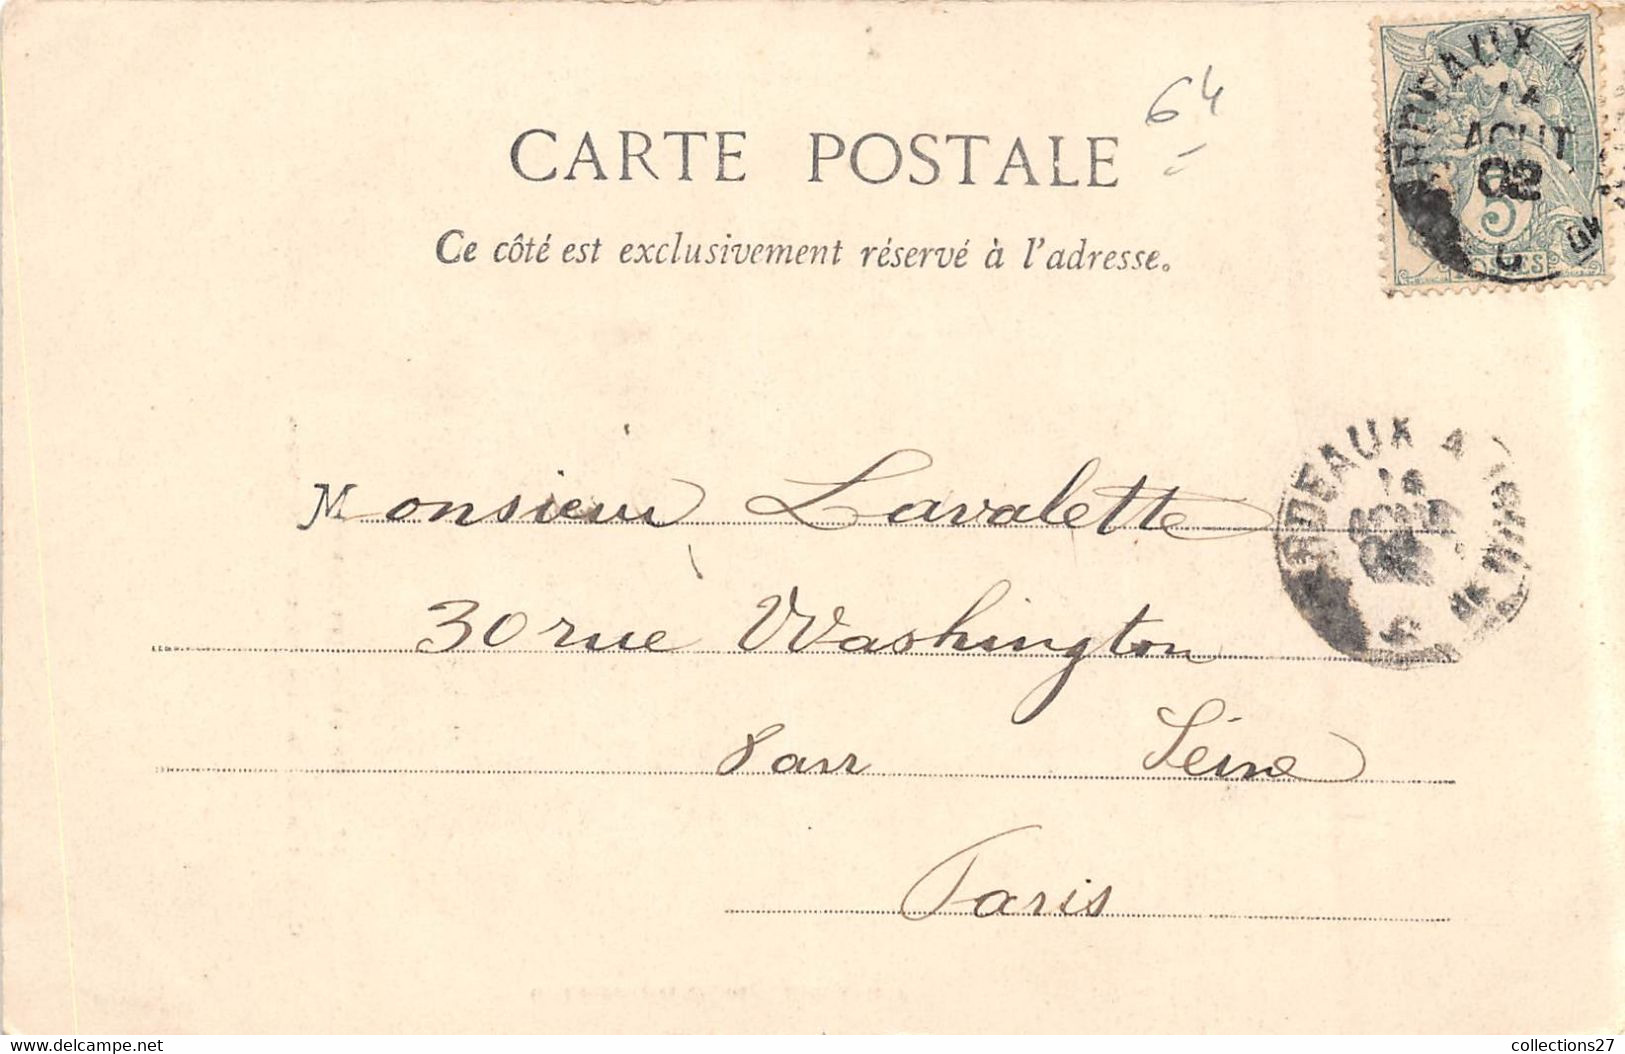 64
CARTE POSTALE
Ce côté est exclusivement réservé à l'adresse.
BORDEAUX A
14
AOUT
02
5
POSTES
Monsieur Lavalette
30 rue Washington
Seine
Paris
RDEAUX A
14
collections27